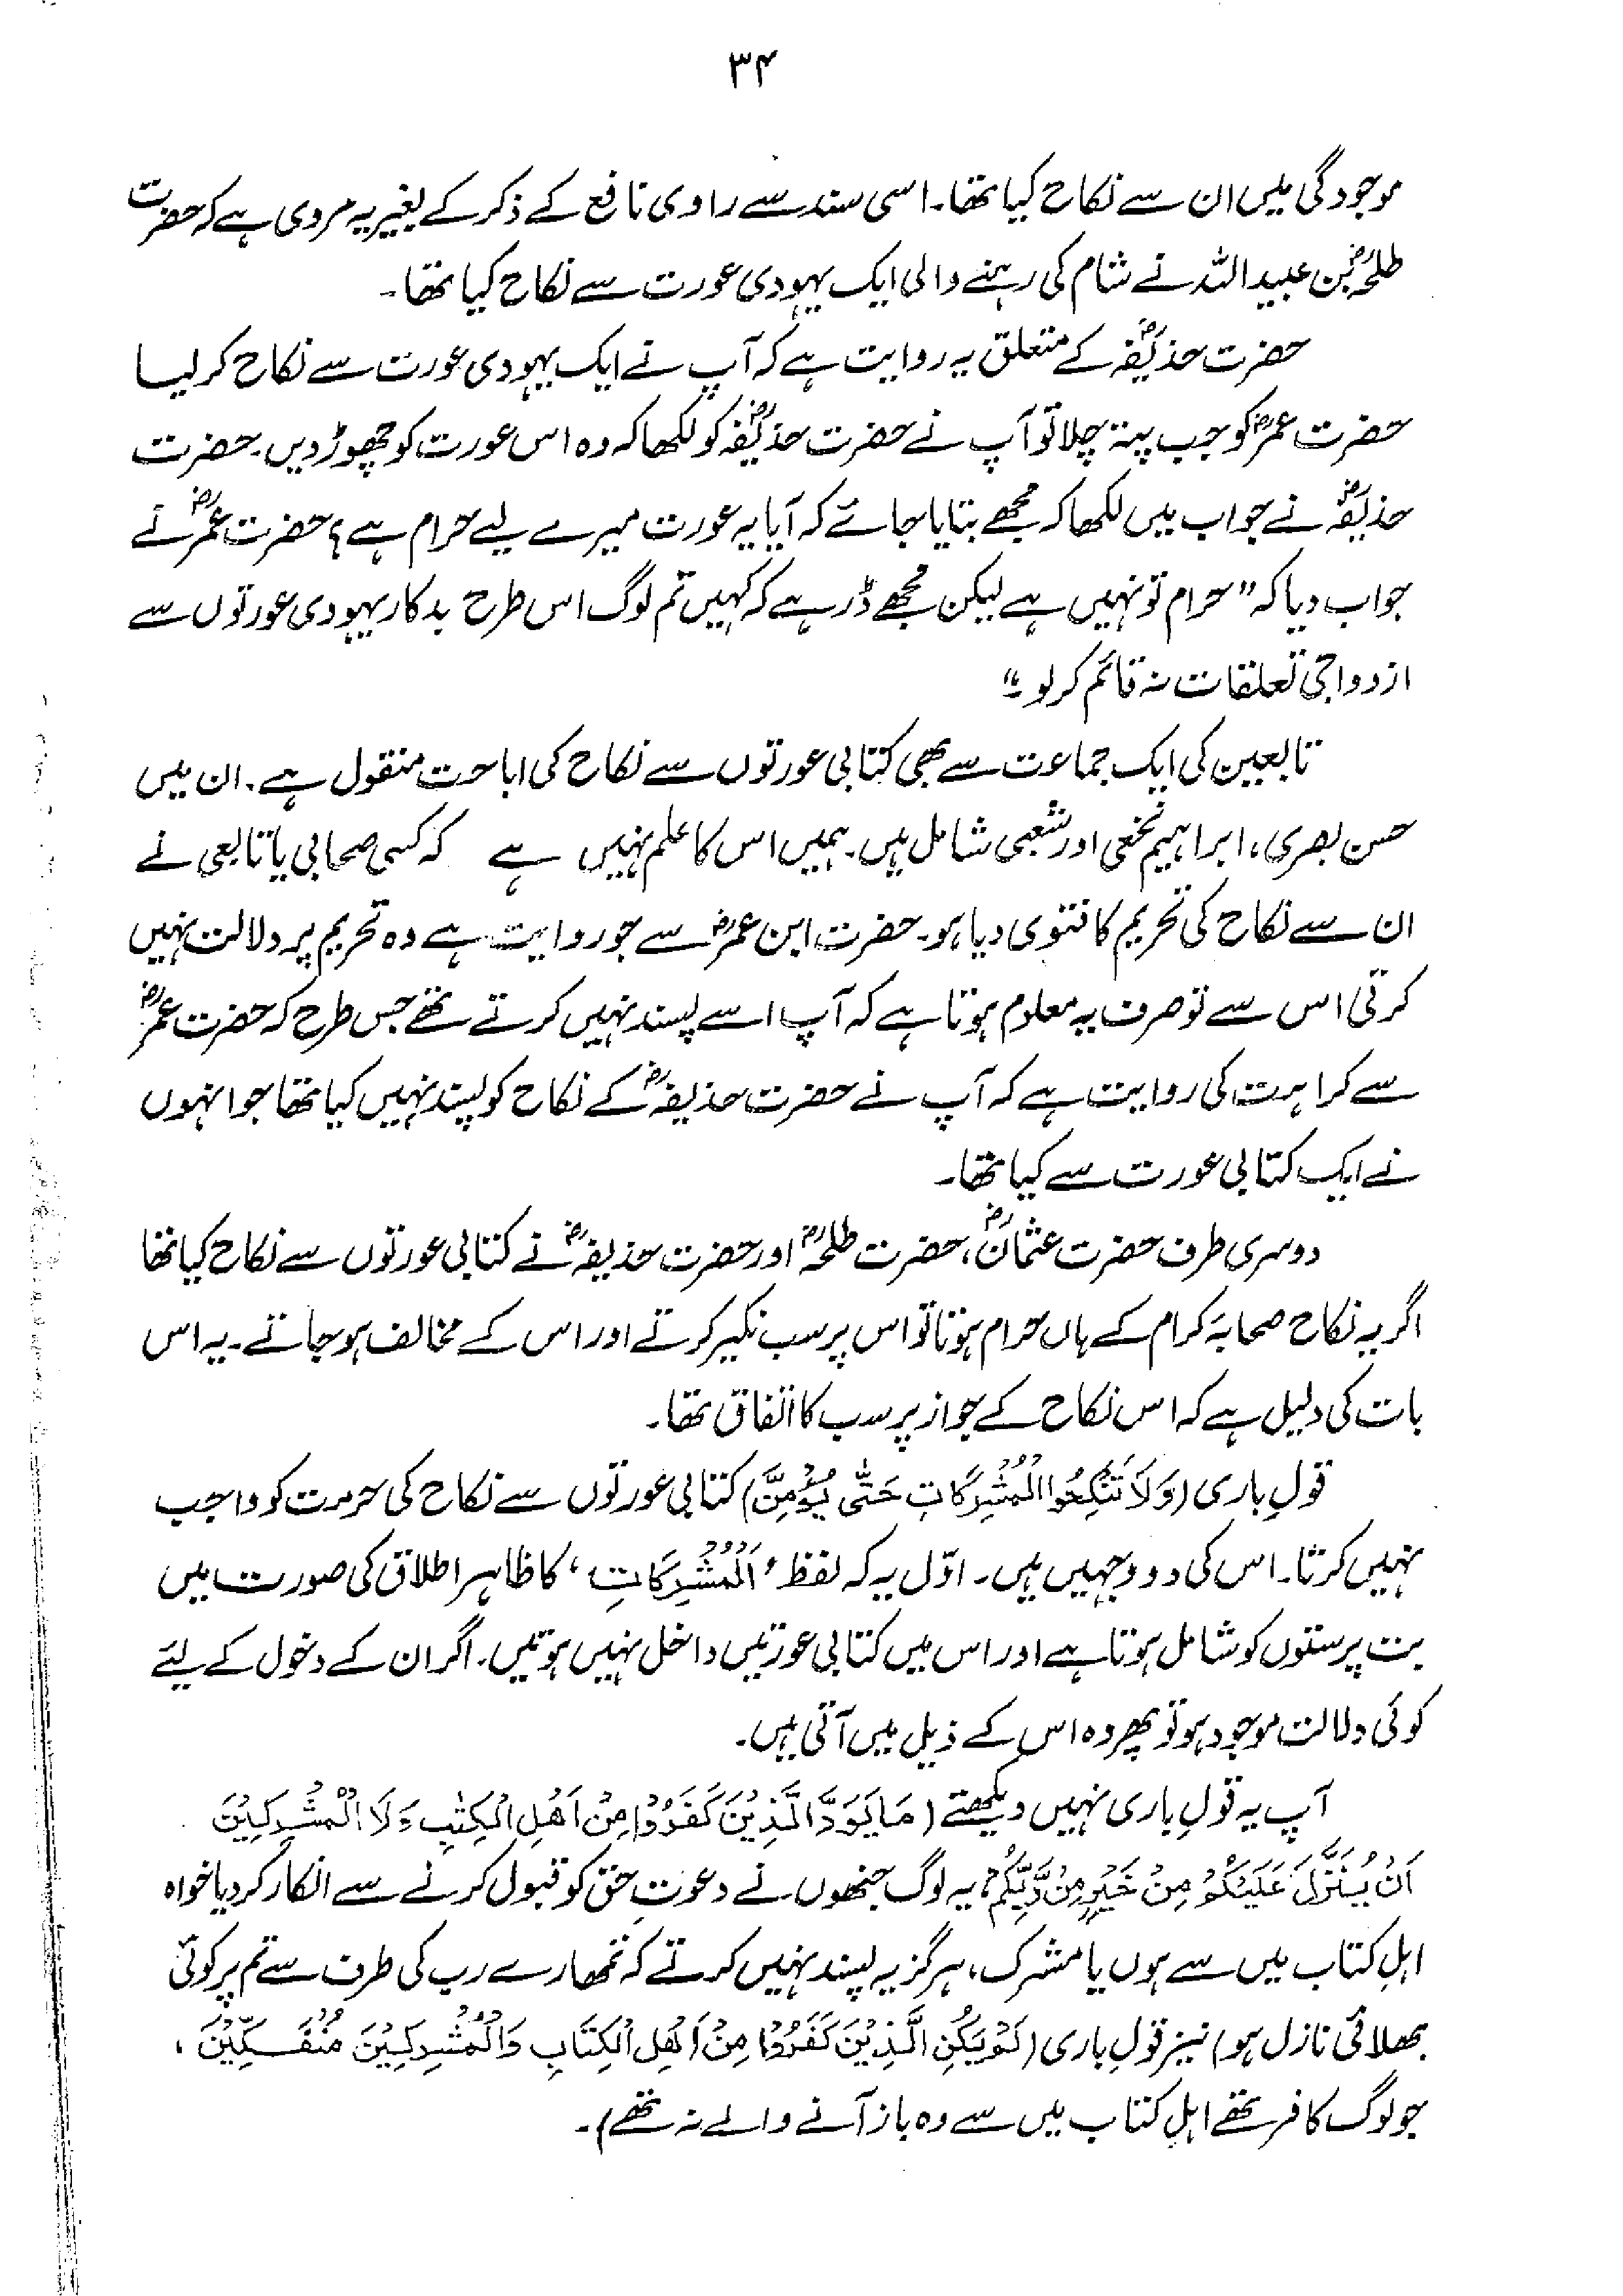 ۳۴
موجودگی میں ان سے نکاح کیا تھا۔ اسی سند سے راوی نافع کے ذکر کے بغیر یہ مروی ہے کہ حضرت
طلحہؓ بن عبید اللہ نے شام کی رہنے والی ایک یہودی عورت سے نکاح کیا تھا۔
حضرت حذیفہؓ کے متعلق یہ روایت ہے کہ آپ نے ایک یہودی عورت سے نکاح کر لیا
حضرت عمرؓ کو جب پتہ چلا تو آپ نے حضرت حذیفہؓ کو لکھا کہ وہ اس عورت کو چھوڑ دیں۔ حضرت
حذیفہؓ نے جواب میں لکھا کہ مجھے بتایا جائے کہ آیا یہ عورت میرے لیے حرام ہے؟ حضرت عمرؓ نے
جواب دیا کہ "حرام تو نہیں ہے لیکن مجھے ڈر ہے کہ کہیں تم لوگ اس طرح بدکار یہودی عورتوں سے
ازدواجی تعلقات نہ قائم کر لو۔"
تابعین کی ایک جماعت سے بھی کتابی عورتوں سے نکاح کی اباحت منقول ہے۔ ان میں
حسن بصری، ابراہیم نخعی اور شعبی شامل ہیں۔ ہمیں اس کا علم نہیں ہے کہ کسی صحابی یا تابعی نے
ان سے نکاح کی تحریم کا فتویٰ دیا ہو۔ حضرت ابن عمرؓ سے جو روایت ہے وہ تحریم پر دلالت نہیں
کرتی اس سے تو صرف یہ معلوم ہوتا ہے کہ آپ اسے پسند نہیں کرتے تھے جس طرح کہ حضرت عمرؓ
سے کراہت کی روایت ہے کہ آپ نے حضرت حذیفہؓ کے نکاح کو پسند نہیں کیا تھا جو انہوں
نے ایک کتابی عورت سے کیا تھا۔
دوسری طرف حضرت عثمانؓ، حضرت طلحہؓ اور حضرت حذیفہؓ نے کتابی عورتوں سے نکاح کیا تھا
اگر یہ نکاح صحابۂ کرام کے ہاں حرام ہوتا تو اس پر سب نکیر کرتے اور اس کے مخالف ہو جاتے۔ یہ اس
بات کی دلیل ہے کہ اس نکاح کے جواز پر سب کا اتفاق تھا۔
قولِ باری (وَلَا تَنْكِحُوا الْمُشْرِكَاتِ حَتَّىٰ يُؤْمِنَّ) کتابی عورتوں سے نکاح کی حرمت کو واجب
نہیں کرتا۔ اس کی دو وجہیں ہیں۔ اوّل یہ کہ لفظ ’اَلْمُشْرِكَاتِ‘ کا ظاہر اطلاق کی صورت میں
بت پرستوں کو شامل ہوتا ہے اور اس میں کتابی عورتیں داخل نہیں ہوتیں۔ اگر ان کے دخول کے لیے
کوئی دلالت موجود ہو تو پھر وہ اس کے ذیل میں آتی ہیں۔
آپ یہ قولِ باری نہیں دیکھتے (مَا يَوَدُّ الَّذِيْنَ كَفَرُوْا مِنْ اَهْلِ الْكِتٰبِ وَلَا الْمُشْرِكِيْنَ
اَنْ يُّنَزَّلَ عَلَيْكُمْ مِنْ خَيْرٍ مِنْ رَّبِّكُمْ، یہ لوگ جنھوں نے دعوتِ حق کو قبول کرنے سے انکار کر دیا خواہ
اہلِ کتاب میں سے ہوں یا مشرک، ہرگز یہ پسند نہیں کرتے کہ تمھارے رب کی طرف سے تم پر کوئی
بھلائی نازل ہو) نیز قولِ باری (لَمْ يَكُنِ الَّذِيْنَ كَفَرُوْا مِنْ اَهْلِ الْكِتَابِ وَالْمُشْرِكِيْنَ مُنْفَكِّيْنَ،
جو لوگ کافر تھے اہلِ کتاب میں سے وہ باز آنے والے نہ تھے)۔